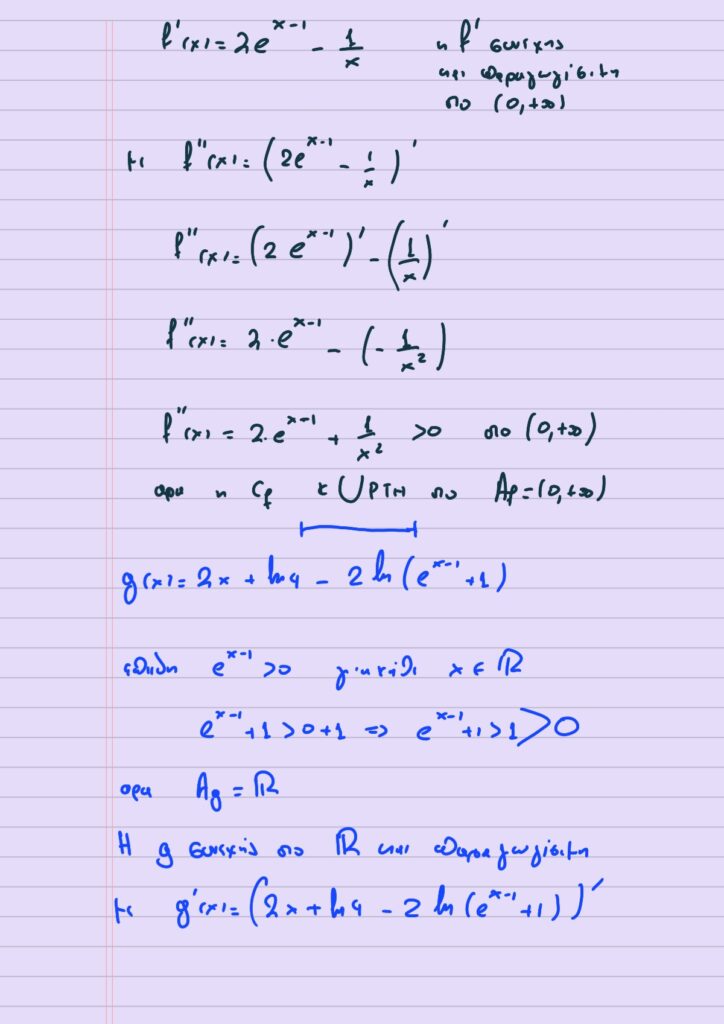 f'(x) = 2e^{x-1} - 1/x η f' συνεχής
και παραγωγίσιμη
στο (0,+∞)
με f''(x) = (2e^{x-1} - 1/x)'
f''(x) = (2 e^{x-1})' - (1/x)'
f''(x) = 2·e^{x-1} - (-1/x²)
f''(x) = 2·e^{x-1} + 1/x² >0 στο (0,+∞)
αρα η Cf κUρτη στο Af=(0,+∞)
g(x) = 2x + ln4 - 2 ln(e^{x-1}+1)
επειδη e^{x-1} >0 για καθε x ∈ ℝ
e^{x-1}+1 > 0+1 => e^{x-1}+1 > 1 > 0
αρα Ag = ℝ
Η g συνεχής στο ℝ και παραγωγίσιμη
με g'(x) = (2x + ln4 - 2 ln(e^{x-1}+1))'